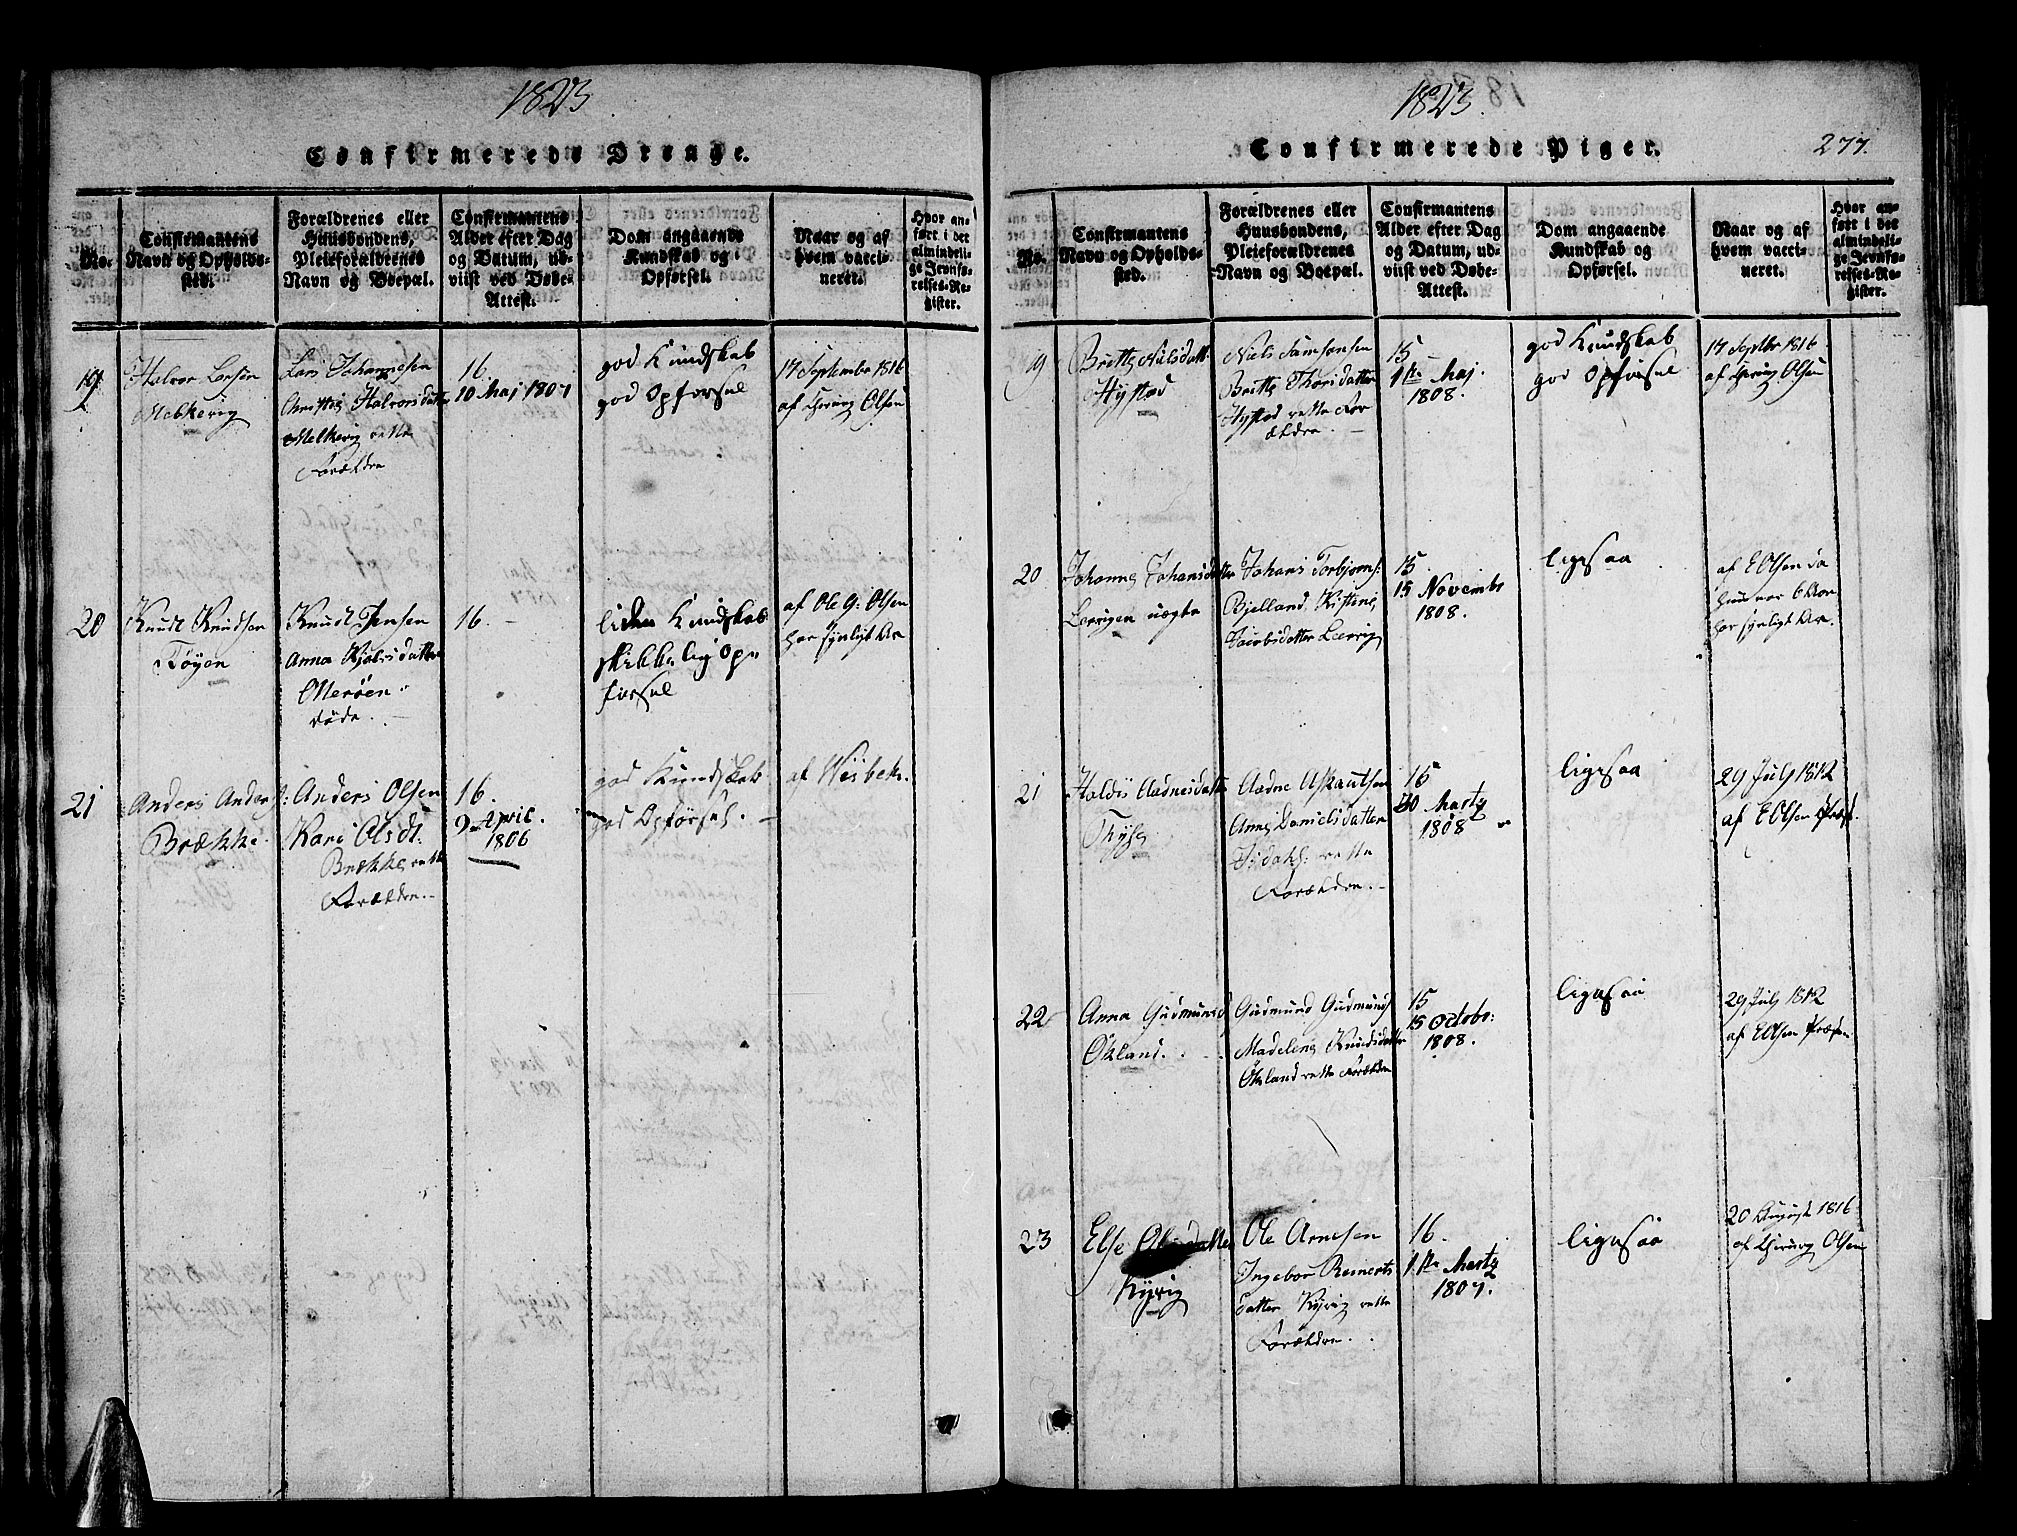 1823
Confirmerede Drenge.
No.
Confirmantens
Navn og Opholds-
sted.
Forældrenes eller
Huusbondens,
Pleieforældrenes
Navn og Boepæl.
Confirmantens
Alder efter Dag
og Datum, ud-
viist ved Døbe-
Attest.
Dom angaaende
Kundskab og
Opførsel.
Naar og af
hvem vacci-
neret.
Hvor an-
ført i det
almindeli-
ge Jevnfø-
relses-Re-
gister.
19
Halvor Larsen
Lars Johannesen
Halvorsdatter
rette
Forældre
16.
10 Maj 1807
god Kundskab
god Opførsel
17 September 1816
af Chirurg Olsen
20
Knudt Knudsen
Røyen
Knudt Jensen
Anna
døde.
16.
liden Kundskab
skikkelig Op-
førsel
af Ole G: Olsen
har synligt Ar
21
Anders Anders:
Brække.
Anders Olsen
Kari Olsdt:
Brække rette
Forældre.
16.
9 April.
1806
god Kundskab
god Opførsel.
af
1823.
Confirmerede Piger.
277.
No.
Confirmantens
Navn og Opholds-
sted.
Forældrenes eller
Huusbondens,
Pleieforældrenes
Navn og Boepæl.
Confirmantens
Alder efter Dag
og Datum, ud-
viist ved Døbe-
Attest.
Dom angaaende
Kundskab og
Opførsel.
Naar og af
hvem vacci-
neret.
Hvor an-
ført i det
almindeli-
ge Jevnfø-
relses-Re-
gister.
19
Britte Nilsdatt:
Hystad
Niels Samsonsen
Britte Thorsdatter
Hystad rette For-
ældre.
15
1ste Maj.
1808.
god Kundskab
god Opførsel
17 Septbr 1816
af Chirurg Olsen
20
Johanne Johansdatter
uægte
Johans Torbjørns:
Bjelland,
Jacobsdatter
15
15 Novembr
1808.
ligesaa
af E Olsen da
hun var 6 Aar
har synligt Ar.
21
Aadnesdatter
Aadne Askautsen
Anne Danielsdatter
rette
Forældre.
15
Martz
1808
ligesaa
29 July 1812
af E Olsen Præst.
22
Anna Gudmunsd
Økland.
Gudmund Gudmunds
Madelene Knudsdatter
Økland rette Forældre
15
15 Octobr:
1808.
ligesaa
29 July 1812
af E Olsen
23
Else Olsdatter
Kyvig
Ole Arnesen
Ingebor Reinerts
datter Kyvig rette
Forældre.
16.
1ste Martz
1807.
ligesaa
20 August 1816
af Chirurg Olsen